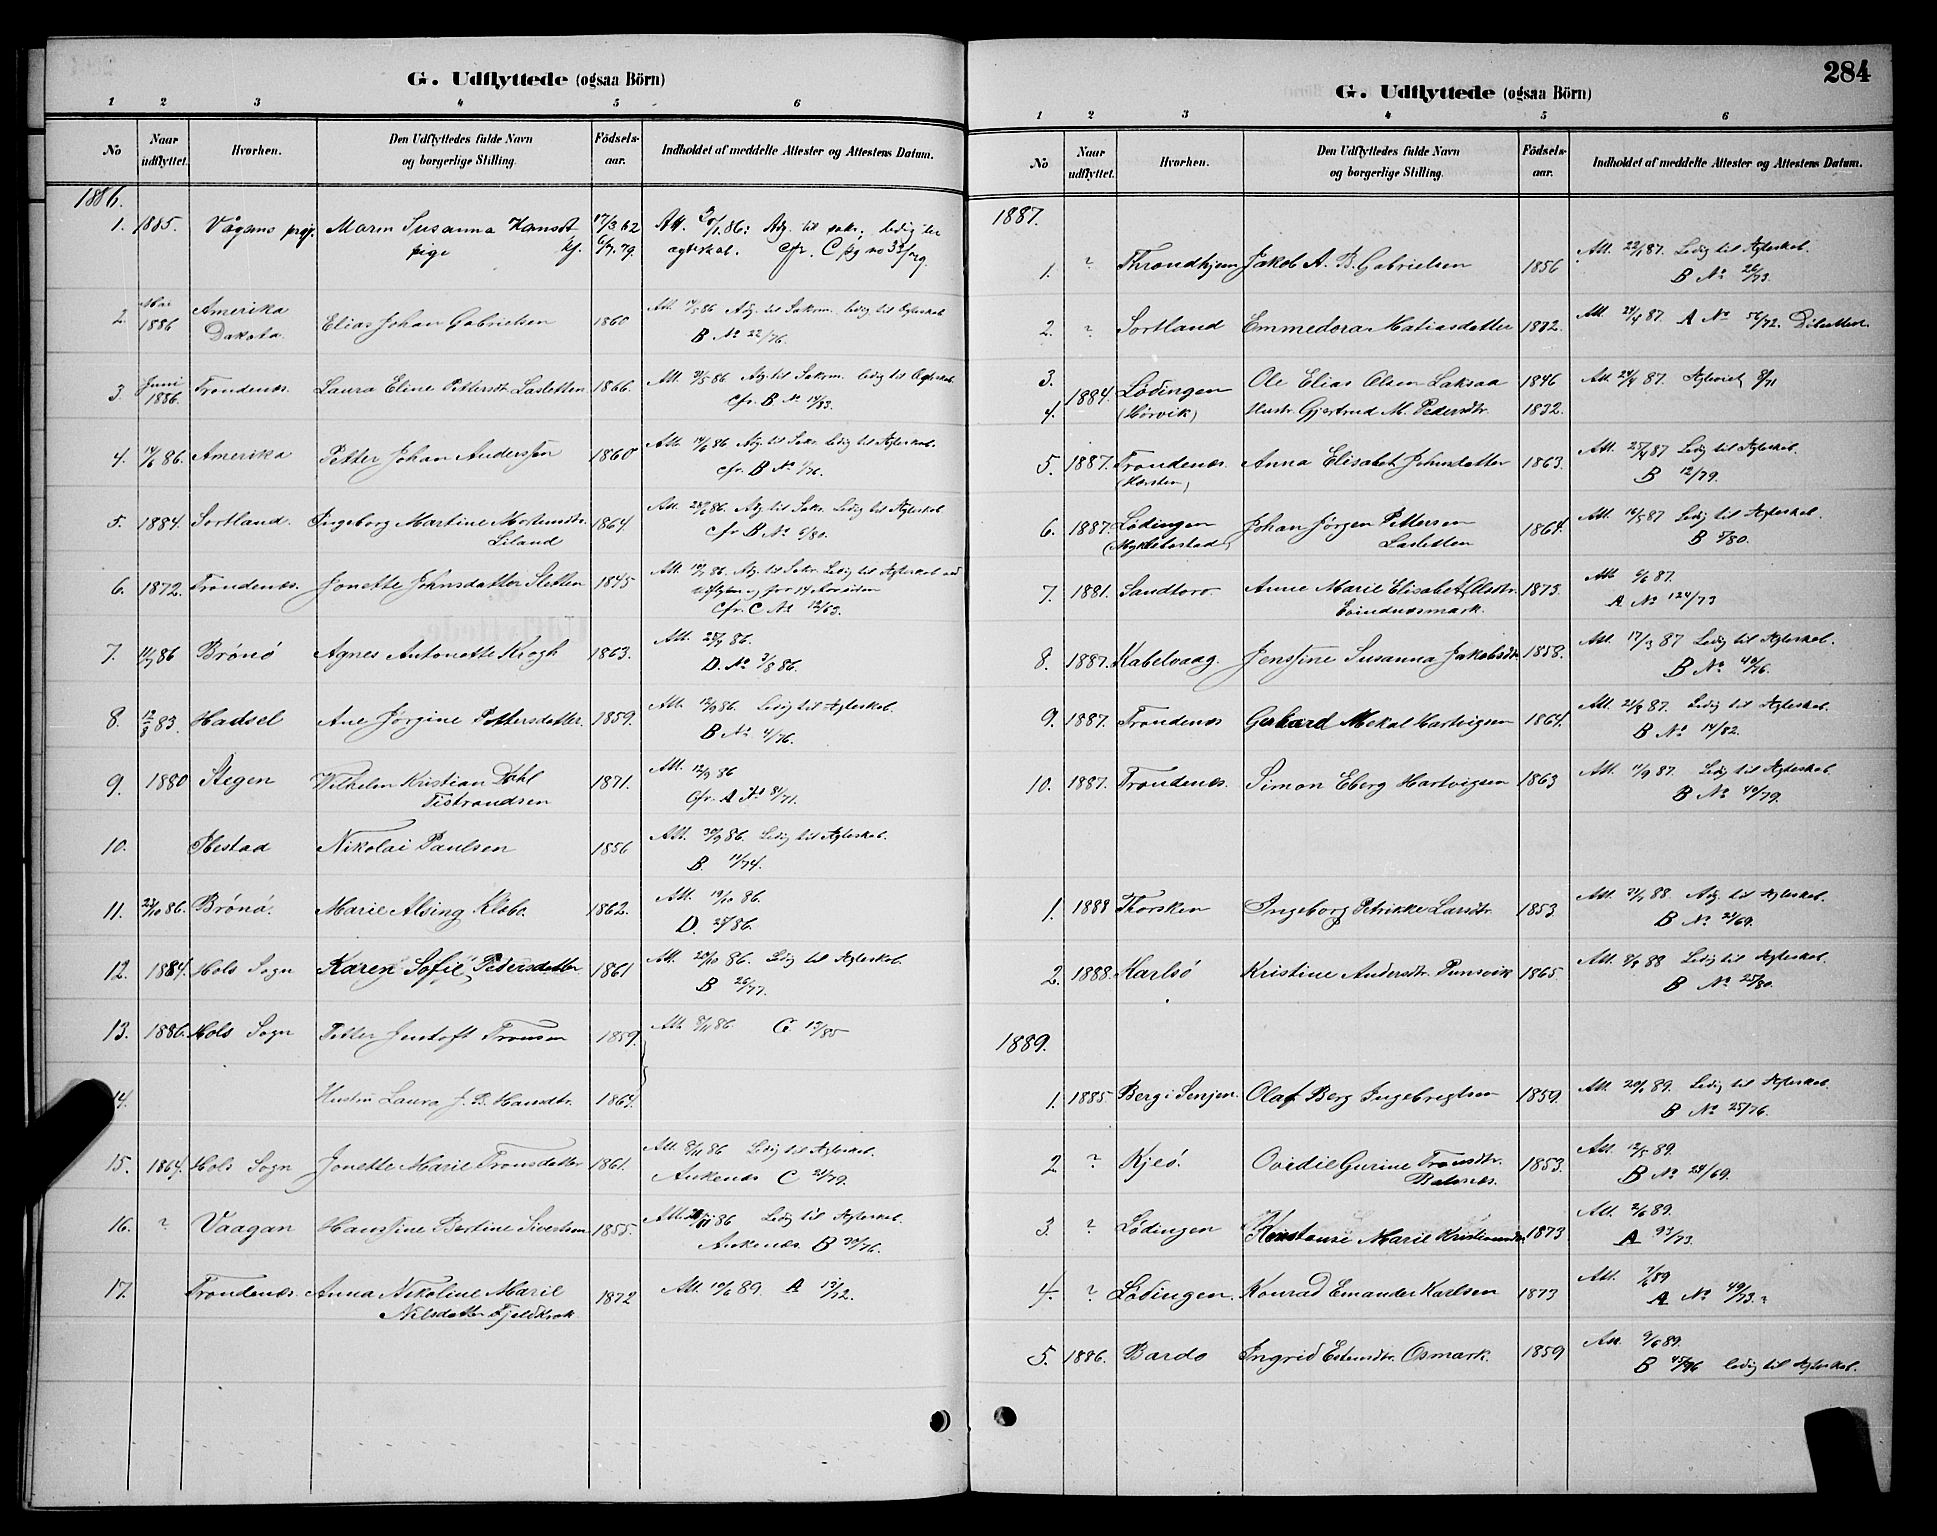 G. Udflyttede (ogsaa Börn)
1 2 3 4 5 6
No
Naar udflyttet.
Hvorhen.
Den Udflyttedes fulde Navn og borgerlige Stilling.
Födsels-aar.
Indholdet af meddelte Attester og Attestens Datum.
1886.
1. 1885. Vågans prgj. Maren Susanna Hansdt 17/3.62 Att.
pige kj. 6/7.79. ægteskab. cfr. C
2. Mai 1886 Amerika Elias Johan Gabrielsen 1860 Att. 14/5 86 Adg. til Sakrm. ledig til Ægteskab
Dakota. B No 22/76.
3. Juni 1886. Trondenæs. Laura Eline Pettersdt. Lasletten 1866. Att. 9/5 86 Adg. til Sakrm. ledig til Ægteskab.
cfr. B No 14/83.
4. 14/6 86. Amerika Petter Johan Anderssen 1860 Att. 14/6 86 Adg. til Sakr. ledig til Ægteskab.
cfr. B No 1/76.
5. 1884. Sortland. Ingeborg Martine Mortensdtr. 1864 Att. 28/6 86. Adg. til Sakr. Ledig til Ægteskab
Liland cfr B No 6/80.
6. 1872. Trondenæs. Jonette Johnsdatter Sletten 1845 Att. 12/7 86. Adg. til Sakr. Ledig til Ægteskab ved
Cfr. C No 12/63.
7. 14/7 86 Brönö Agnes Antonette Krogh 1863. Att. 25/7 86.
D. No 3/8 86.
8. 12/8 83. Hadsel Ane Jörgine Pettersdatter. 1859. Att. 12/9 86. Ledig til Ægteskab.
B No 4/76.
9. 1880 Stegen Vilhelm Kristian Dahl 1871. Att. 12/9 86
Tistrandsen Cfr. A No 81/71.
10. Ibestad Nikolai Paulsen 1856 Att. 30/9 86. Ledig til Ægteskab.
B. 11/74.
11. 22/10 86. Brönö. Marie Alsing Klæbo. 1862. Att. 19/10 86.
D. 25/86.
12. 1884. Hols Sogn Karen Sofie Pedersdatter 1861 Att. 28/10 86. Ledig til Ægteskab
B 26/77.
13. 1886. Hols Sogn Petter Jentoft Tronsen 1859. Att. 8/11 86. G 13/85
14. Hustru Laura J. B. Hansdtr. 1864.
15. 1864. Hols Sogn Jonette Marie Tronsdatter 1861. Att. 8/11 86 Ledig til Ægteskab.
Ankenæs C 21/79.
16. ? Vaagan Hansine Bertine Sivertsen 1855. Att. 86 Ledig til Ægteskab.
Ankenæs. B 30/76.
17. Trondenæs. Anna Nikoline Marie 1872 Att. 10/6 89. A 13/72.
Nilsdatter Fjeldkrok
284
G. Udflyttede (ogsaa Börn)
1 2 3 4 5 6
No
Naar udflyttet.
Hvorhen.
Den Udflyttedes fulde Navn og borgerlige Stilling.
Födsels-aar.
Indholdet af meddelte Attester og Attestens Datum.
1887.
1. ? Throndhjem Jakob A. B. Gabrielsen 1856 Att. 22/1 87. Ledig til Ægteskab.
B No 26/73.
2. ? Sortland Emmedora Matiasdatter 1872. Att. 24/4 87. A No 56/72.
3. 1884. Lödingen Ole Elias Olsen Laksaa 1846 Att. 24/4 87. Ægteviet 8/71
4. Hustr. Gjertrud M. Pedersdtr. 1832.
5. 1887. Trondenæs. Anna Elisabet Johnsdatter 1863. Att. 25/4 87 Ledig til Ægteskab.
B 12/79.
6. 1887. Lödingen Johan Jörgen Pettersen 1864. Att. 16/5 87 Ledig til Ægteskab.
(Myklebostad) Lasletten B 5/80.
7. 1881. Sandtorv. Anne Marie Elisabet Olsdtr. 1873. Att 6/6 87.
Evindnæsmark. A No 124/73
8. 1887. Kabelvaag. Jensine Susanna Jakobsdtr 1858. Att. 17/3 87 Ledig til Ægteskab.
B No 40/76.
9. 1887. Trondenæs Gerhard Mekal Hartvigsen 1864. Att. 21/8 87. Ledig til Ægteskab.
B No 14/82.
10. 1887. Trondenæs. Simon Eberg Hartvigsen 1863 Att. 11/9 87. Ledig til Ægteskab.
B No 40/79.
1. 1888 Thorsken Ingeborg Petrikke Larsdtr. 1853 Att. 31/1 88. Adg. til Ægteskab.
B No 21/69.
2. 1888. Karlsö Kristine Andersdtr. Punsvik 1865. Att. 9/8 88 Ledig til Ægteskab.
B No 25/80.
1889.
1. 1885. Berg i Senjen. Olaf Berg Ingebregtsen 1859. Att. 20/1 89. Ledig til Ægteskab.
B No 25/76.
2. ? Kjeö. Ovidie Gurine Tronsdtr. 1853. Att. 12/5 89.
B No 24/69.
3. ? Lödingen Konstanse Marie Kristiansdtr 1873 Att. 2/6 89.
A 93/73.
4. ? Lödingen. Konrad Emander Karlsen 1873 Att. 7/6 89
A No 49/73. ?
5. 1886. Bardo Ingrid Estensdtr. Osmark. 1859 Att. 9/6 89.
B 45/76 ledig til Ægteskab.